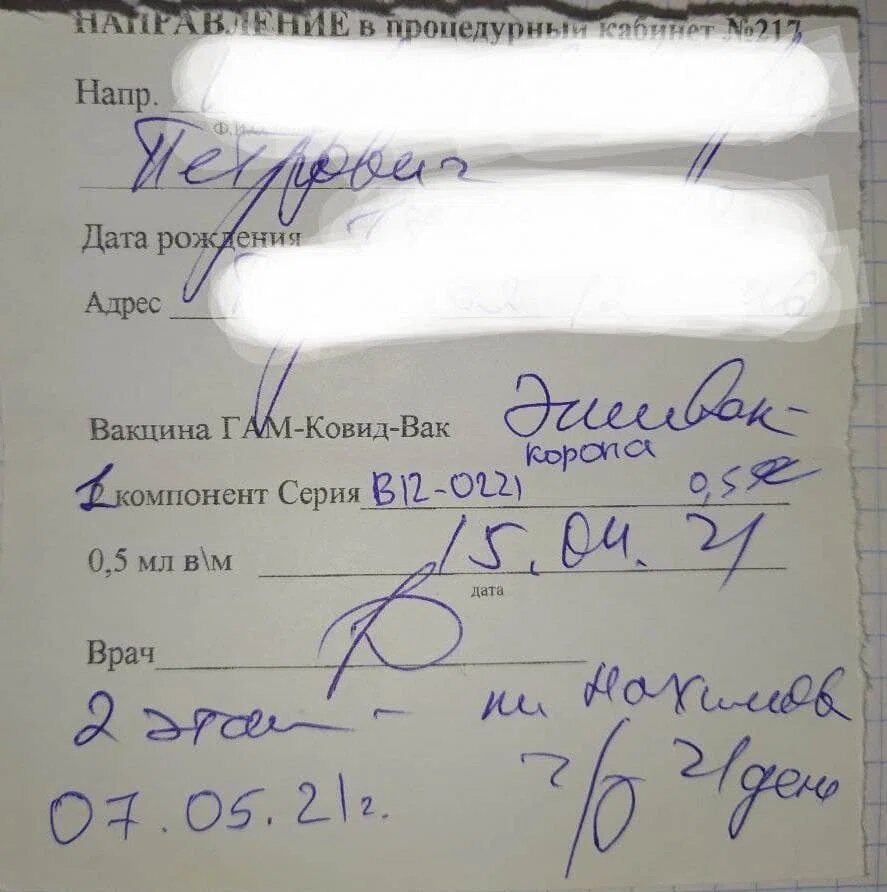 НАПРАВЛЕНИЕ в процедурный кабинет №217
Напр.
Петрович
Дата рождения
Адрес
Вакцина ГАМ-Ковид-Вак Эпивак-
корона
компонент Серия В12-0221 0,5
0,5 мл в\м 15.04.21
дата
Врач
2 этап -
07.05.21г. ч/з 21 день